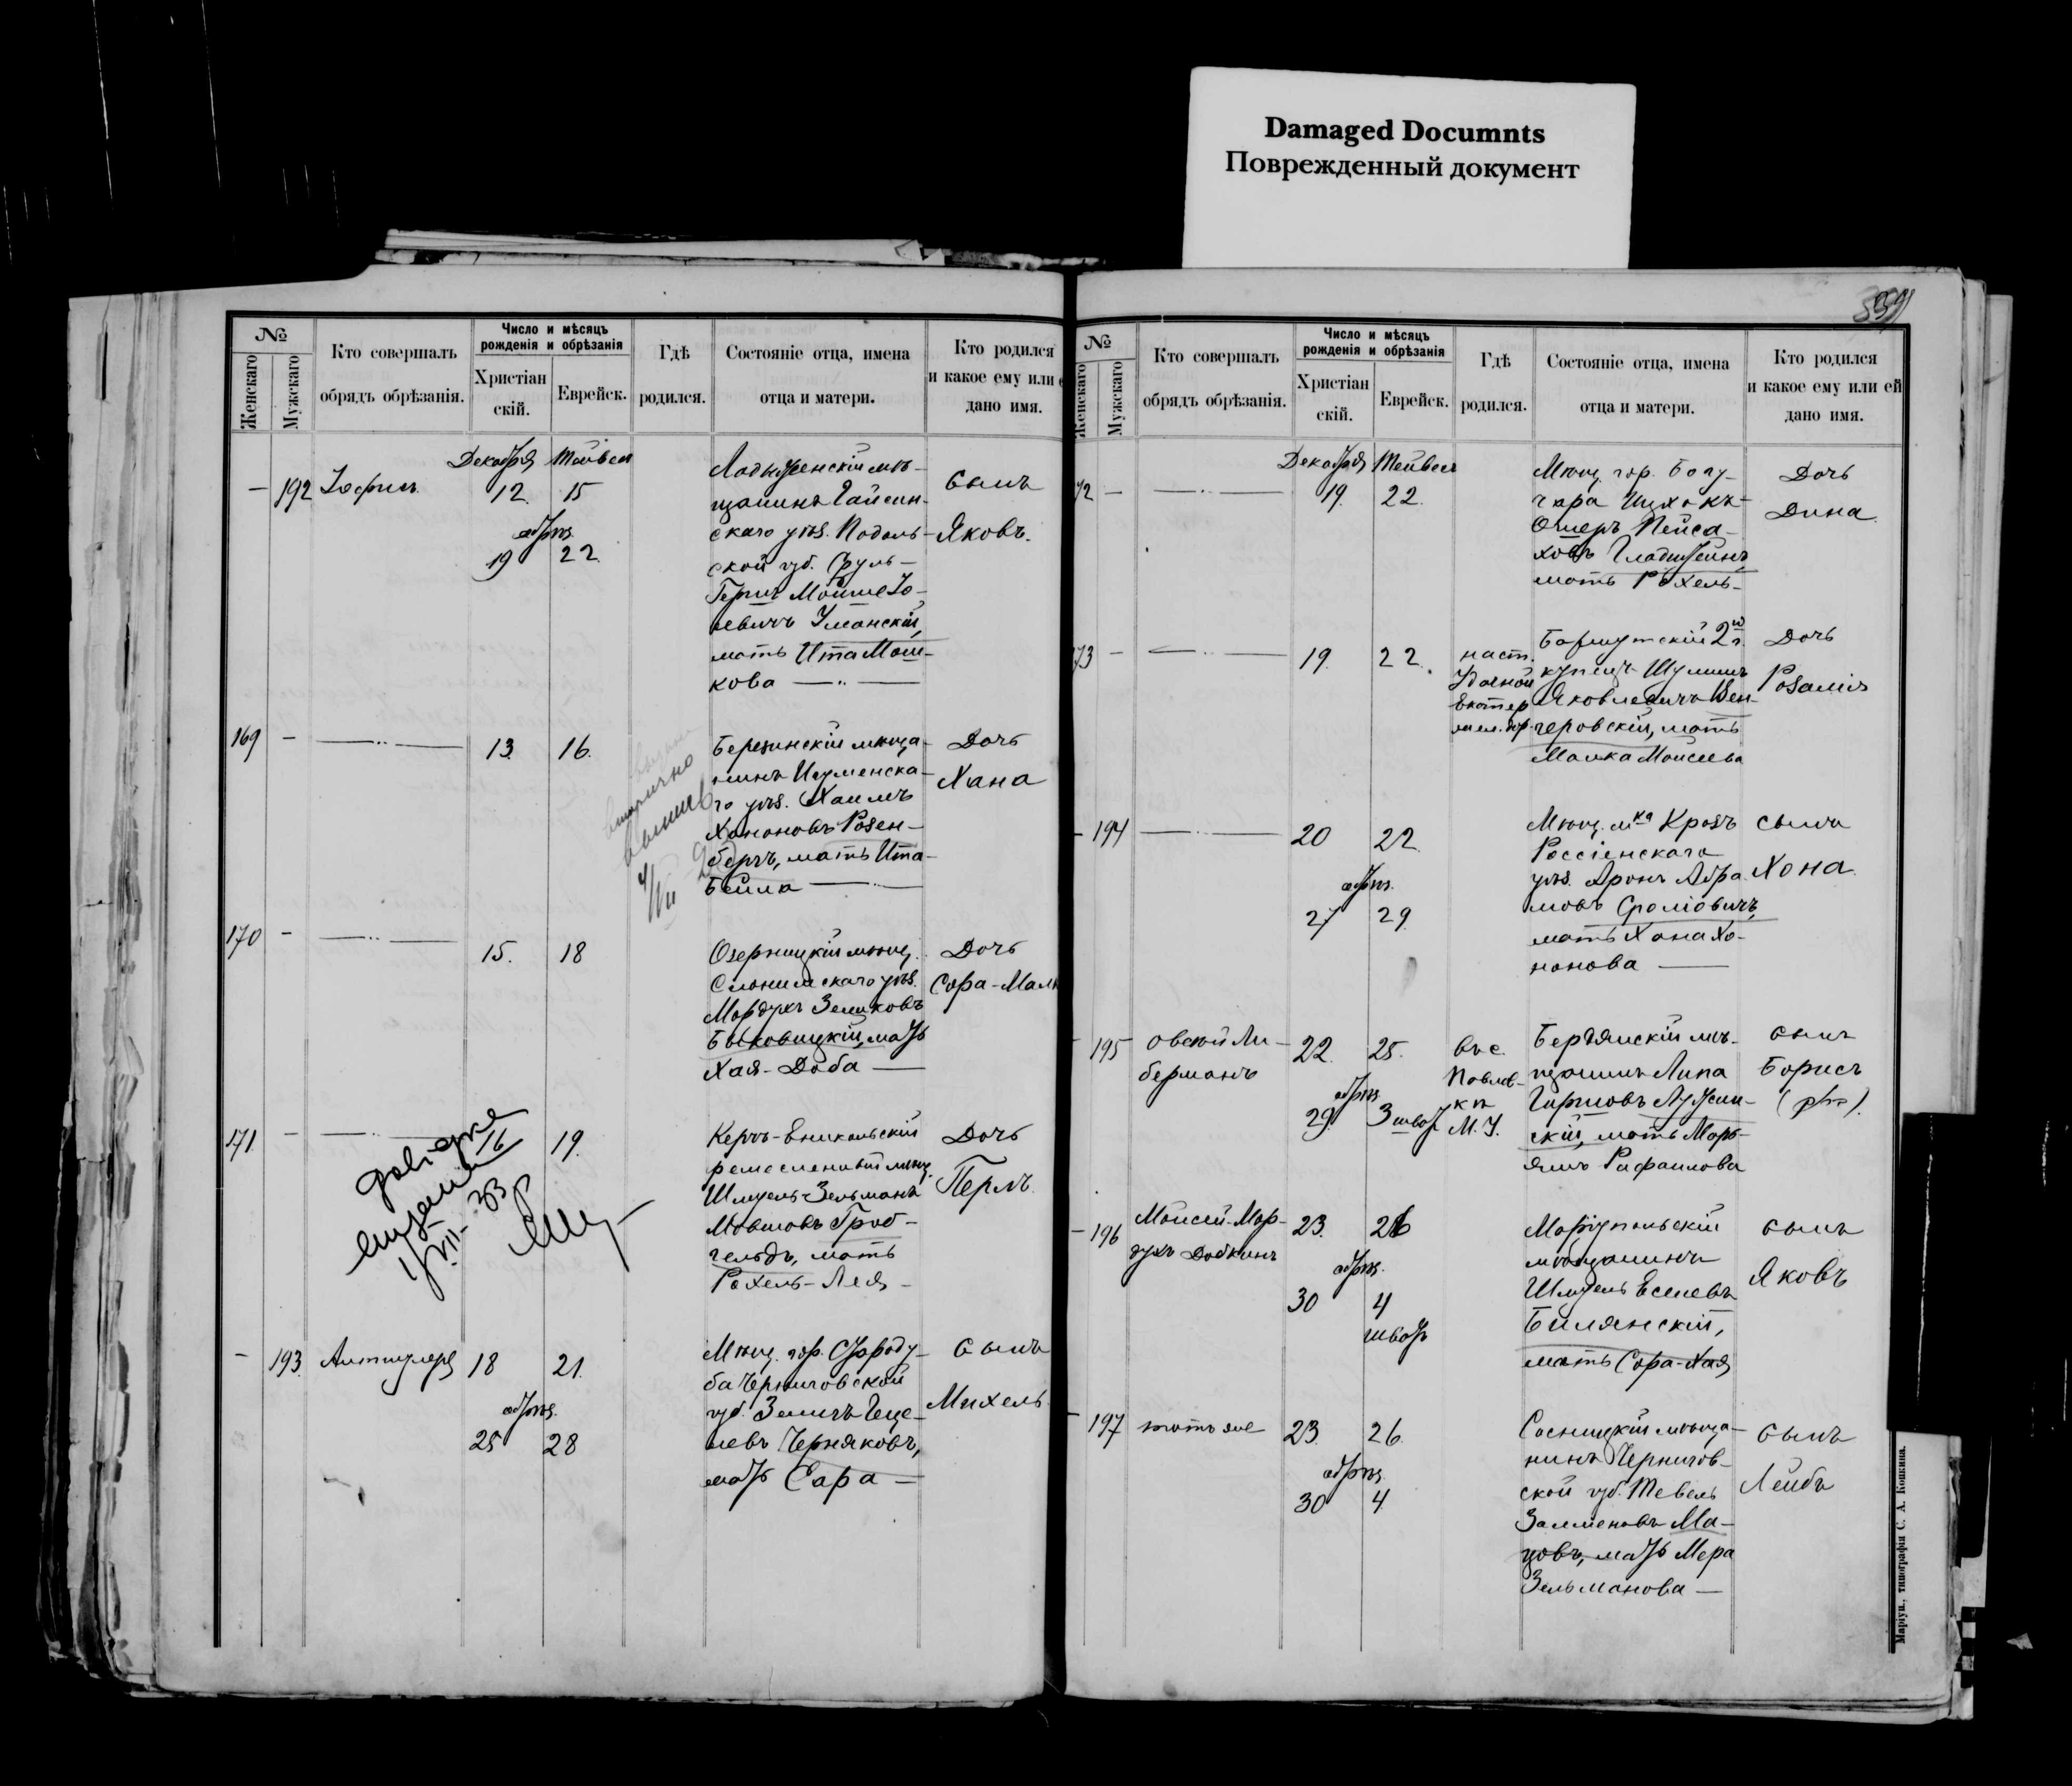 Damaged Documnts
Поврежденный документ
№
Женскаго
Мужскаго
Кто совершалъ
обрядъ обрѣзанія.
Число и мѣсяцъ
рожденія и обрѣзанія
Христіан
скій.
Еврейск.
Гдѣ
родился.
Состояніе отца, имена
отца и матери.
Кто родился
и какое ему или е
дано имя.
Декабря
— 192
12. 15
обрѣз.
19 22
щанинъ Гайсин-
скаго уѣз. Подоль-
ской губ. Сруль-
Гершъ Мойше Іо-
левичъ Уманскій,
мать Ита Мош-
кова — „ —
Сынъ
Яковъ.
169 — — „ — 13. 16.
Березинскій мѣща-
нинъ Игуменска-
го уѣз. Хаимъ
Хононовъ Розен-
бергъ, мать Ита-
Бейла —
Дочь
Хана
170 — — „ — 15. 18
Озерницкій мѣщ.
Слонимскаго уѣз.
Мордухъ Зелиховъ
мать
Хая-Доба —
Дочь
Сора-Малк
171. — 16 19.
Керчь-Еникольскій
Шмуель-Зельманъ
Мовшовъ
мать
Рохель-Лея —
Дочь
Перлъ
— 193. 18 21.
обрѣз.
25 28
Мѣщ. гор. Староду-
ба Черниговской
губ. Зеликъ Геце-
левъ Черняковъ,
мать Сара —
Сынъ
Михель
359
№
Женскаго
Мужскаго
Кто совершалъ
обрядъ обрѣзанія.
Число и мѣсяцъ
рожденія и обрѣзанія
Христіан
скій.
Еврейск.
Гдѣ
родился.
Состояніе отца, имена
отца и матери.
Кто родился
и какое ему или ей
дано имя.
Декабря
72 — — „ — 19. 22.
Мѣщ. гор. Богу-
чара Ицхокъ-
Ошеръ Пейса-
ховъ Гладштейнъ,
мать Рохель-
Дочь
Дина
73 — — „ — 19. 22.
2й г.
купецъ
Яковлевичъ Вен-
геровскій, мать
Малка Моисеева
Дочь
Розалія
— 194 — „ — 20 22.
обрѣз.
27 29.
Мѣщ. мка Крозъ
Россіенскаго
уѣз. Аронъ Абра
мовъ Сроліовичъ,
мать Хана Хо-
нонова —
Сынъ
Хона.
— 195 Овсѣй Ли-
берманъ
22. 25.
обрѣз.
29.
въ с.
Павлов-
ка
М. У.
Бердянскій мѣ-
щанинъ Липа
мать Марь-
ямъ Рафаилова
Сынъ
Борисъ
— 196 Моисей-Мор-
духъ Добкинъ
23. 26
обрѣз.
30 4
Маріупольскій
мѣщанинъ
Шмуель Еселевъ
Билянскій,
мать Сора-Хая
Сынъ
Яковъ
— 197 тотъ же 23. 26.
обрѣз.
30 4
Сосницкій мѣща-
нинъ Чернигов-
ской губ. Тевель
Залменовъ Ма-
цовъ, мать Мера
Зельманова —
Сынъ
Лейбъ
Маріуп., типографія С. А. Копкина.